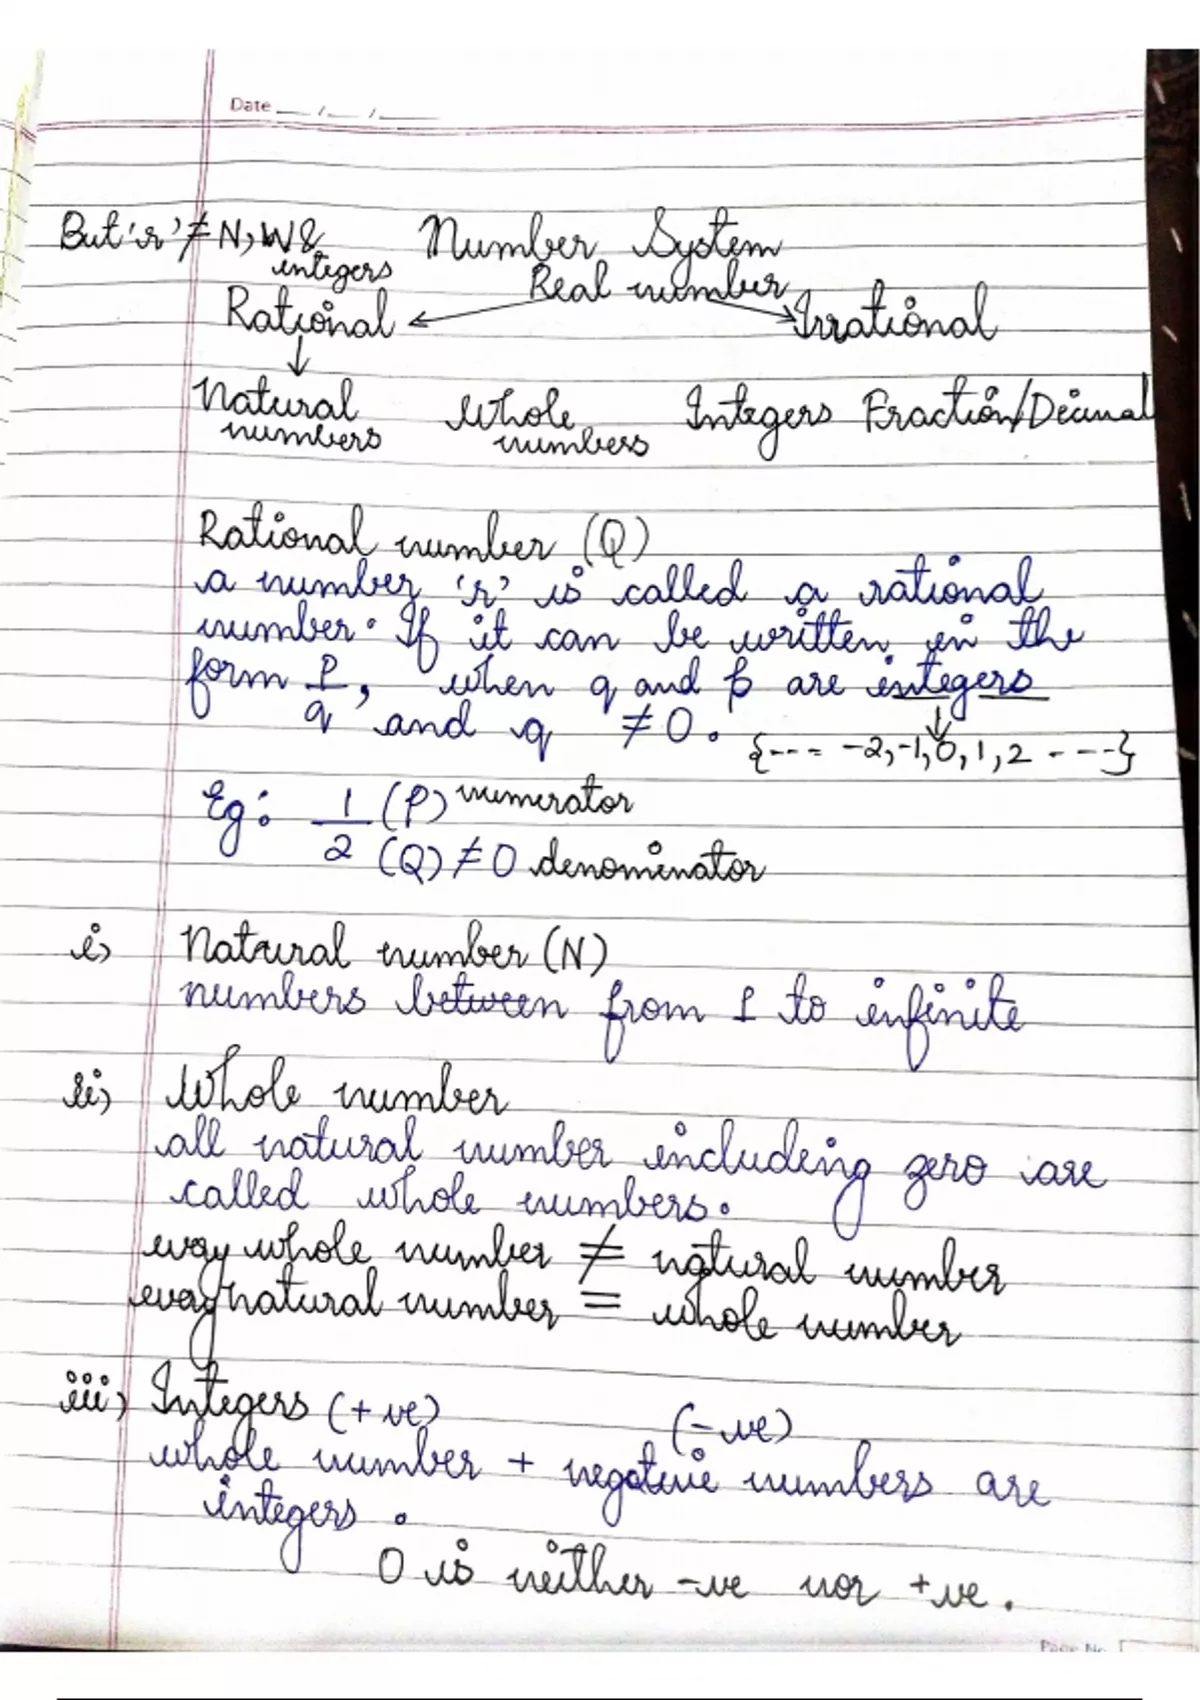 Date __/__/__
But 'r' ≠ N, W & integers
Number System
Real number
Rational Irrational
↓
Natural numbers Whole numbers Integers Fraction/Decimal
Rational number (Q)
a number 'r' is called a rational
number. If it can be written in the
form p/q, when q and p are integers
and q ≠ 0. {--- -2,-1,0,1,2 ----}
Eg: 1/2 (P) numerator
(Q) ≠ 0 denominator
i) Natural number (N)
numbers between from 1 to infinite
ii) Whole number
all natural number including zero are
called whole numbers.
every whole number ≠ natural number
every natural number = whole number
iii) Integers (+ve) (-ve)
whole number + negative numbers are
integers.
0 is neither -ve nor +ve.
Page No.